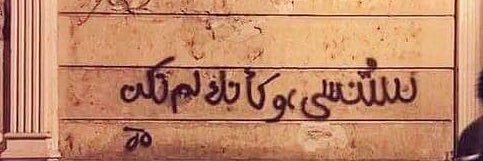 ستُنسى، وكأنك لم تكن